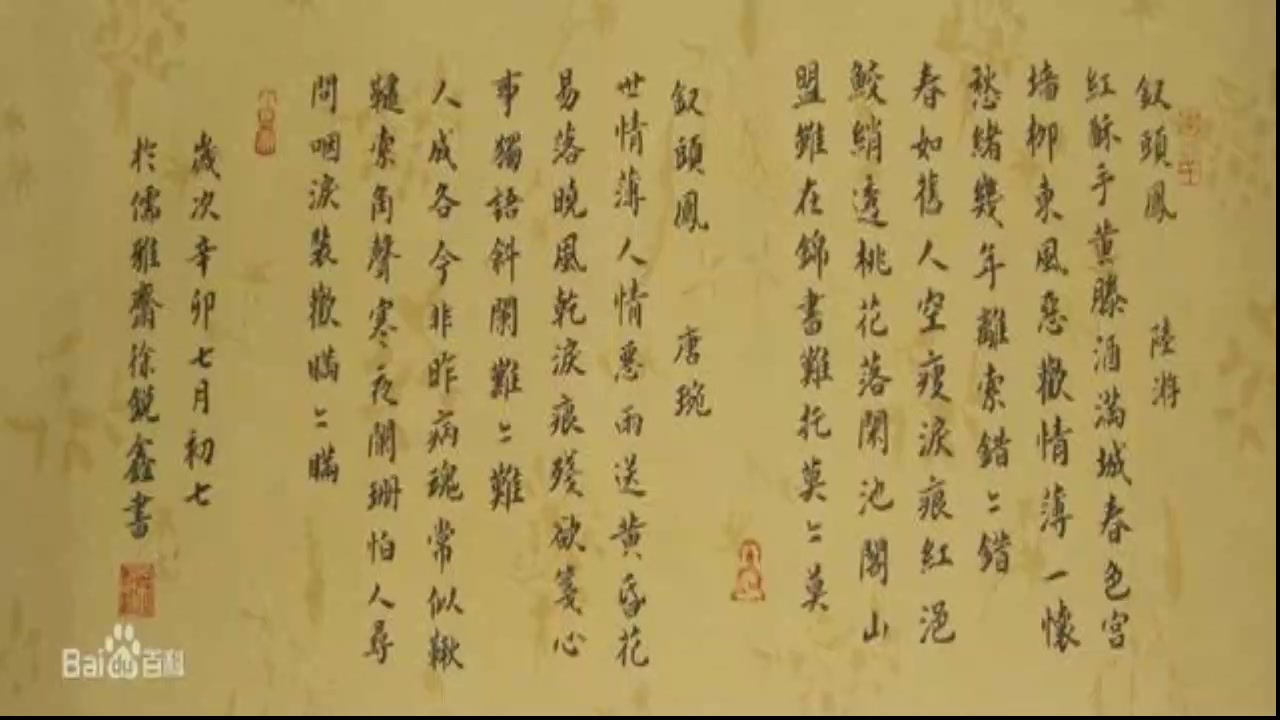 釵頭鳳 陸游
紅酥手黄滕酒滿城春色宮
墻柳東風惡歡情薄一懷
愁緒幾年離索錯〻錯
春如舊人空瘦淚痕紅浥
鮫綃透桃花落閑池閣山
盟雖在錦書難托莫〻莫
釵頭鳳 唐琬
世情薄人情惡雨送黄昏花
易落曉風乾淚痕殘欲箋心
事獨語斜闌難〻難
人成各今非昨病魂常似鞦
韆索角聲寒夜闌珊怕人尋
問咽淚裝歡瞞〻瞞
歲次辛卯七月初七
於儒雅齋徐銳鑫書
Baidu百科